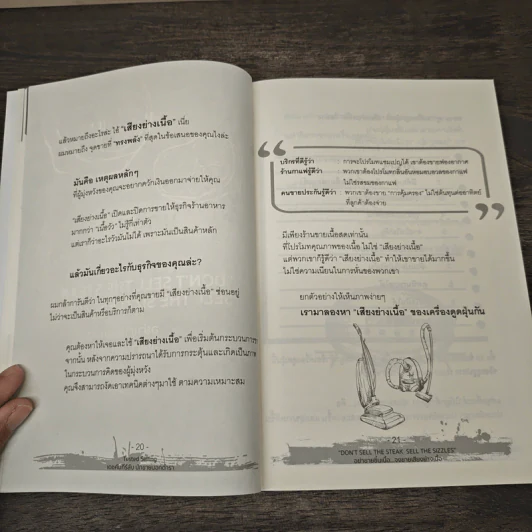 แล้วหมายถึงอะไรล่ะ ใช้ "เสียงย่างเนื้อ" เนี่ย
ผมหมายถึง จุดขายที่ "ทรงพลัง" ที่สุดในข้อเสนอของคุณไงล่ะ
มันคือ เหตุผลหลักๆ
ที่ผู้มุ่งหวังของคุณจะอยากควักเงินออกมาจ่ายให้คุณ
"เสียงย่างเนื้อ" เปิดและปิดการขายให้ธุรกิจร้านอาหาร
มากกว่า "เนื้อวัว" ไม่รู้กี่เท่าตัว
แต่เราก็วางอะไรวัวมันไม่ได้ เพราะมันเป็นสินค้าหลัก
แล้วมันเกี่ยวอะไรกับธุรกิจของคุณล่ะ?
ผมกล้าการันตีว่า ในทุกๆอย่างที่คุณขายมี "เสียงย่างเนื้อ" ซ่อนอยู่
ไม่ว่าจะเป็นสินค้าหรือบริการก็ตาม
คุณต้องหาให้เจอและใช้ "เสียงย่างเนื้อ" เพื่อเริ่มต้นกระบวนการ
จากนั้น หลังจากความปรารถนาได้รับการกระตุ้นและเกิดเป็นภาพ
ในกระบวนการคิดของผู้มุ่งหวัง
คุณจึงสามารถงัดเอาเทคนิคต่างๆมาใช้ ตามความเหมาะสม
- 20 -
Tested Selling
“
บริกรที่ดีรู้ว่า การจะโปรโมทแชมเปญได้ เขาต้องขายฟองอากาศ
ร้านกาแฟรู้ดีว่า พวกเขาต้องโปรโมทกลิ่นอันหอมฉบบายของกาแฟ
ไม่ใช่รสชมของกาแฟ
คนขายประกันรู้ดีว่า พวกเขาต้องขาย "การคุ้มครอง" ไม่ใช่ต้นทุนต่ออาทิตย์
ที่ลูกค้าต้องจ่าย
”
มีเพียงร้านขายเนื้อสดเท่านั้น
ที่โปรโมทคุณภาพของเนื้อ ไม่ใช่ "เสียงย่างเนื้อ"
แต่พวกเขาก็รู้ดีว่า "เสียงย่างเนื้อ" ทำให้เขาขายได้มากขึ้น
ไม่ใช่ความเนียนในการหั่นของพวกเขา
ยกตัวอย่างให้เห็นภาพง่ายๆ
เรามาลองหา "เสียงย่างเนื้อ" ของเครื่องดูดฝุ่นกัน
- 21 -
"DON'T SELL THE STEAK SELL THE SIZZLES"
อย่าขายชิ้นเนื้อ จงขายเสียงย่างเนื้อ